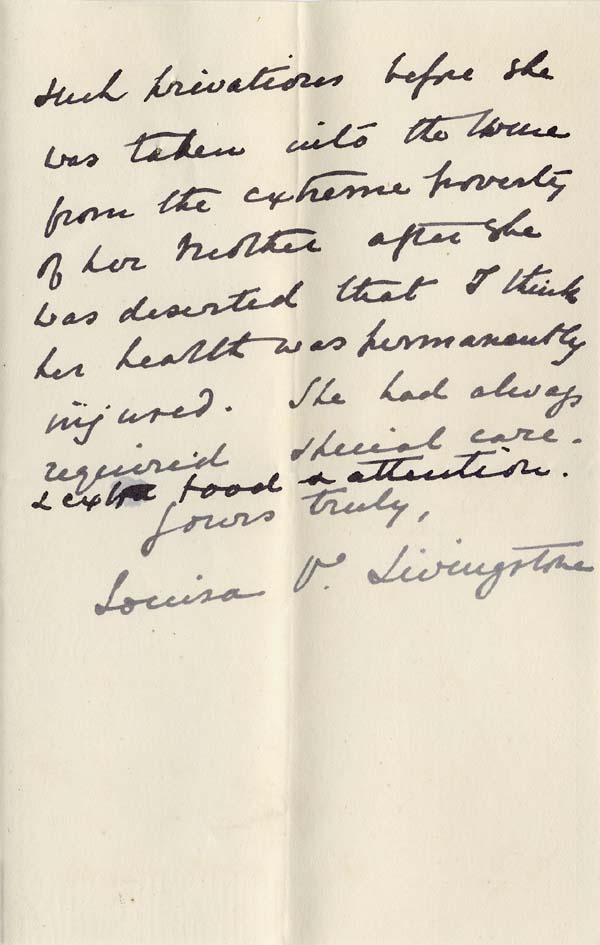 such privations before she
was taken into the Home
from the extreme poverty
of her Mother after she
was deserted that I think
her health was permanently
injured. She had always
required special care.
& extra food & attention.
Yours truly,
Louisa V. Livingstone